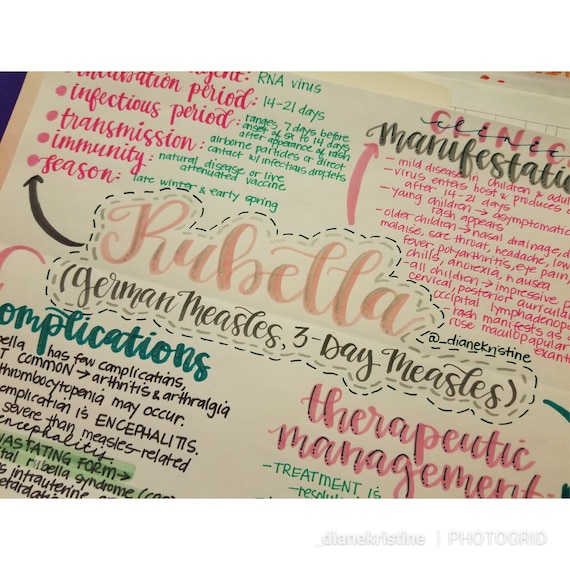 agent: RNA virus
•incubation period: 14-21 days
•infectious period: ranges, 7 days before
onset of sx to 14 days
after appearance of rash
•transmission: airborne particles or direct
contact w/ infectious droplets
•immunity: natural disease or live
attenuated vaccine
•season: late winter & early spring
CLINICAL
manifestatio
- mild disease in children & adul
- virus enters host & produces
after 14-21 days
- young children → asymptomatic
rash appears
- older children → nasal drainage, d
malaise, sore throat, headache, low
fever, polyarthritis, eye pain,
chills, anorexia, nausea
- all children → impressive
cervical, posterior auricular
occipital lymphadenop
- rash manifests as
rose maculopapular
exant
Rubella
(German Measles, 3-Day Measles)
@_dianekristine
omplications
bella has few complications,
T COMMON → arthritis & arthralgia
thrombocytopenia may occur.
complication is ENCEPHALITIS.
severe than measles-related
encephalitis
VASTATING FORM →
ital rubella syndrome
s intrauterine
retardation
therapeutic
management:
-TREATMENT IS
_dianekristine | PHOTOGRID